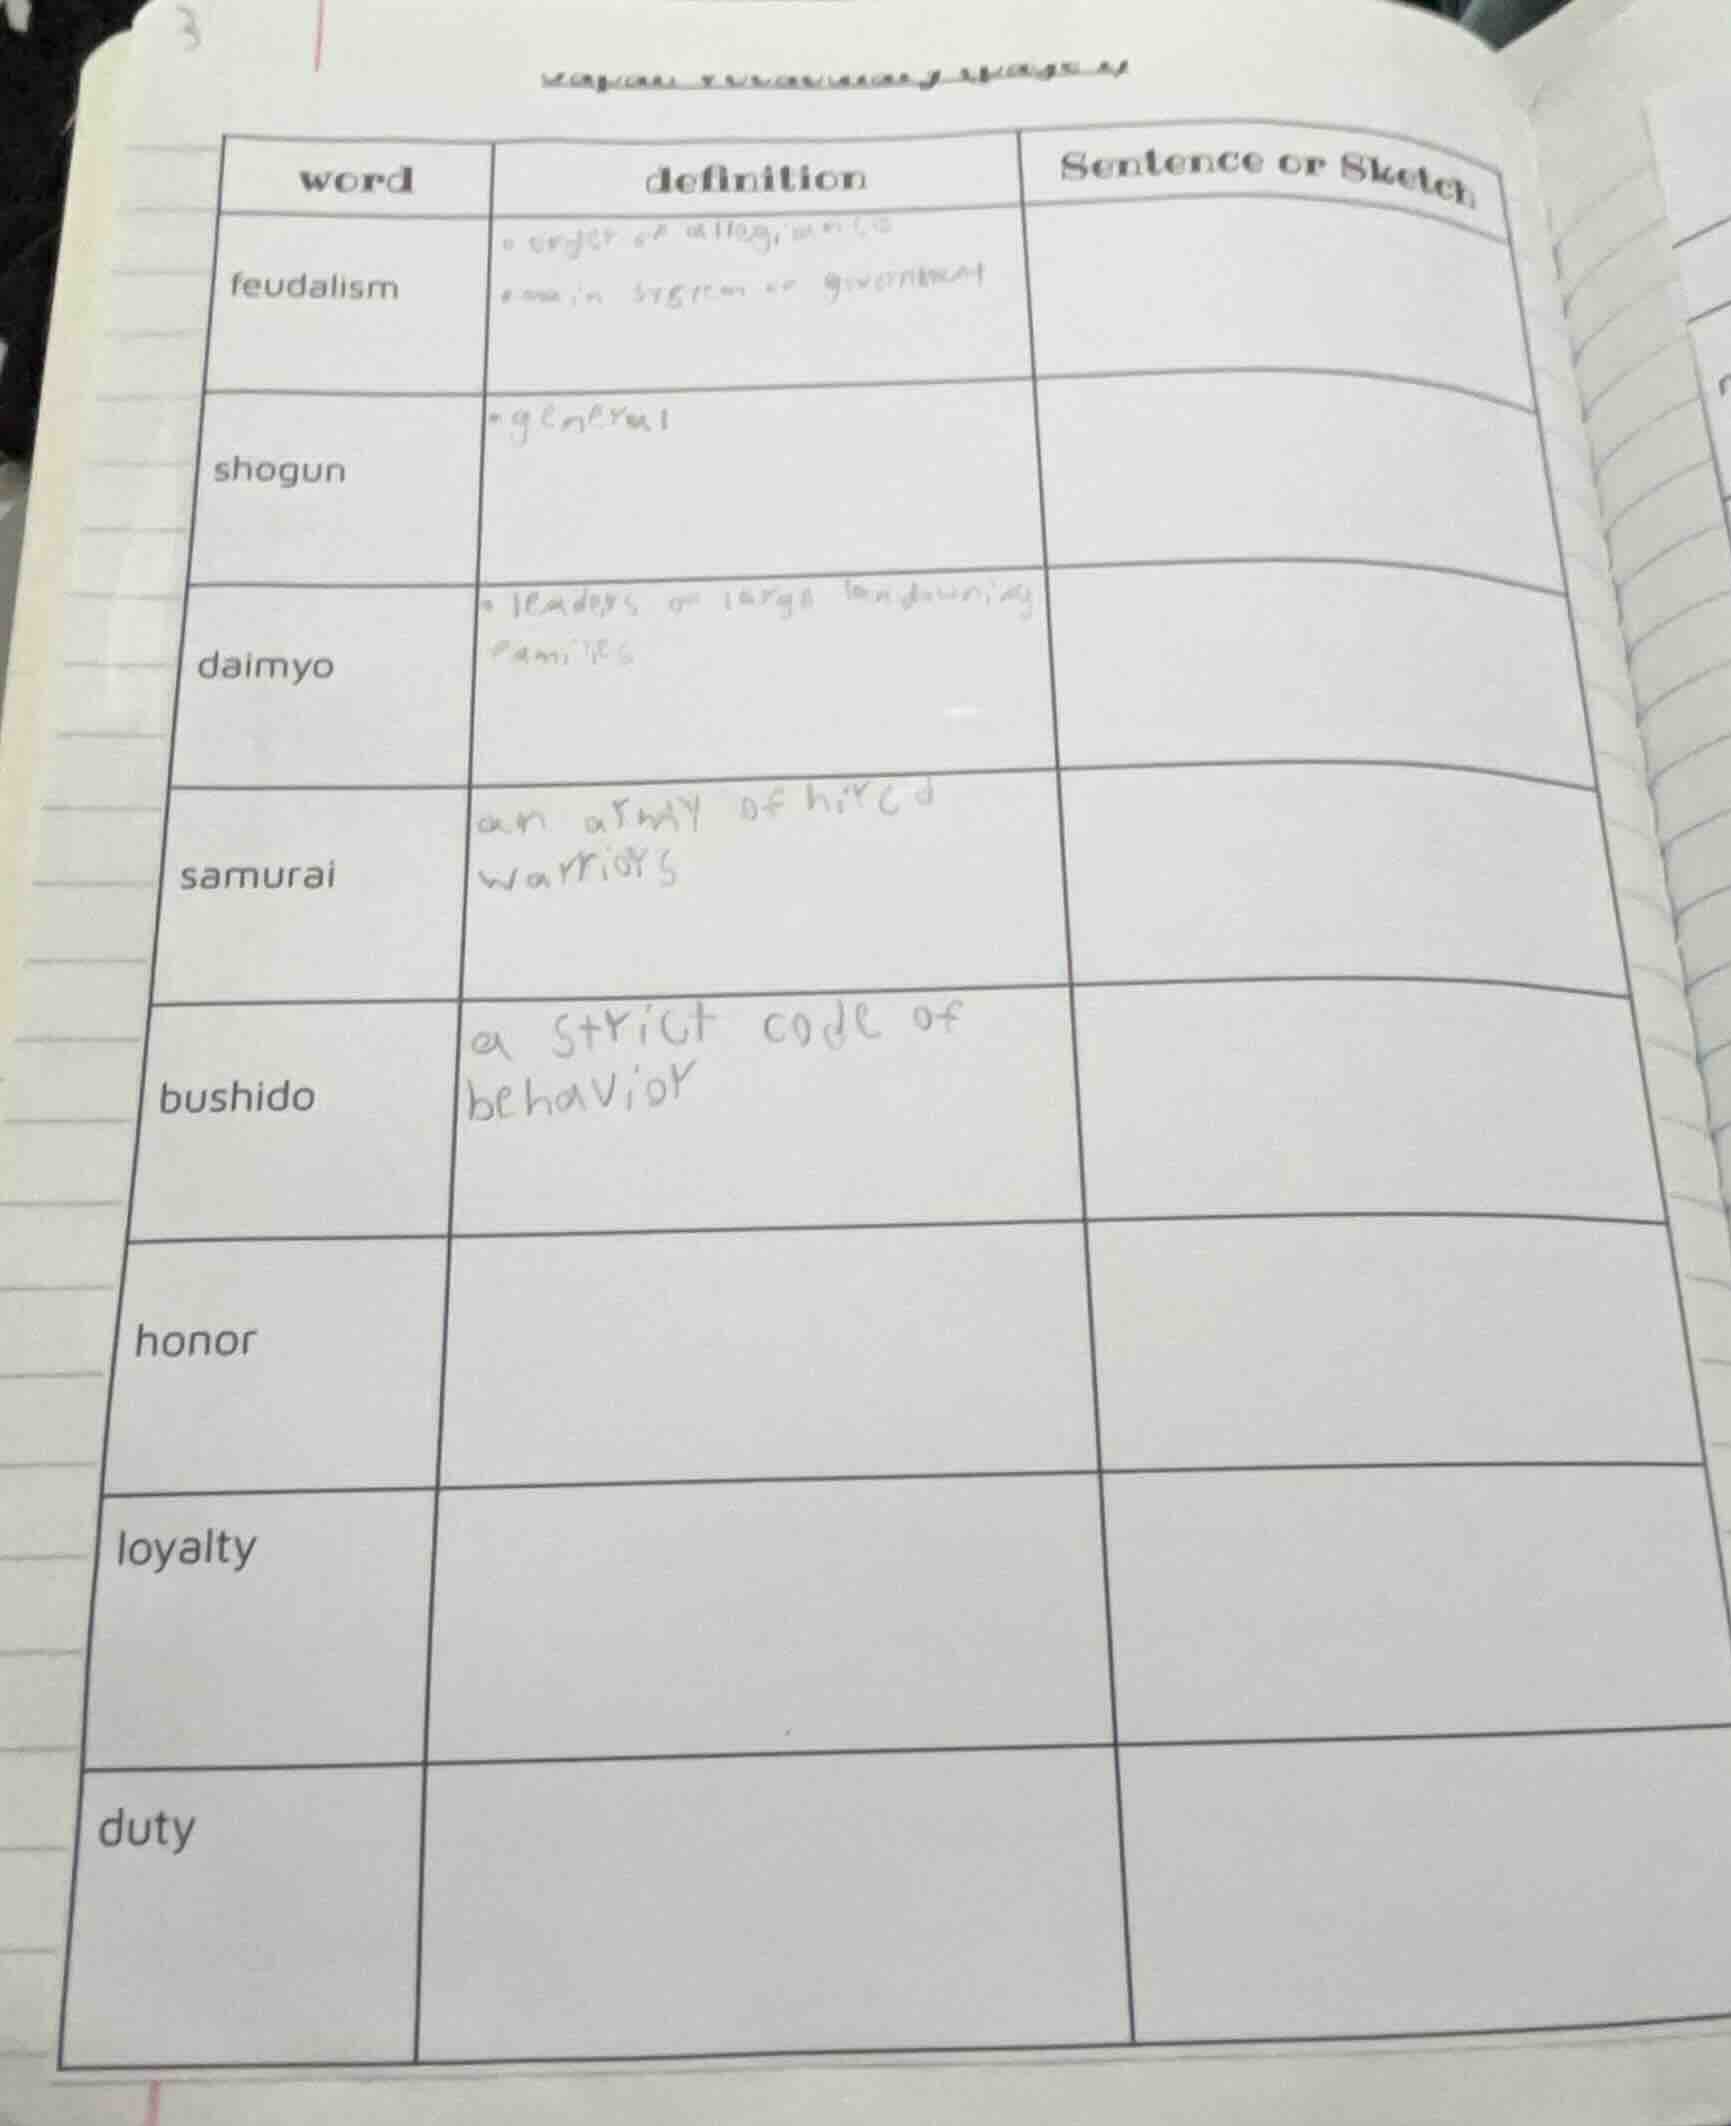 3
word definition Sentence or Sketch
feudalism
• order of allegiance
• main system of government
shogun
• general
daimyo
• leaders of large landowning
families
samurai
an army of hired
warriors
bushido
a strict code of
behavior
honor
loyalty
duty